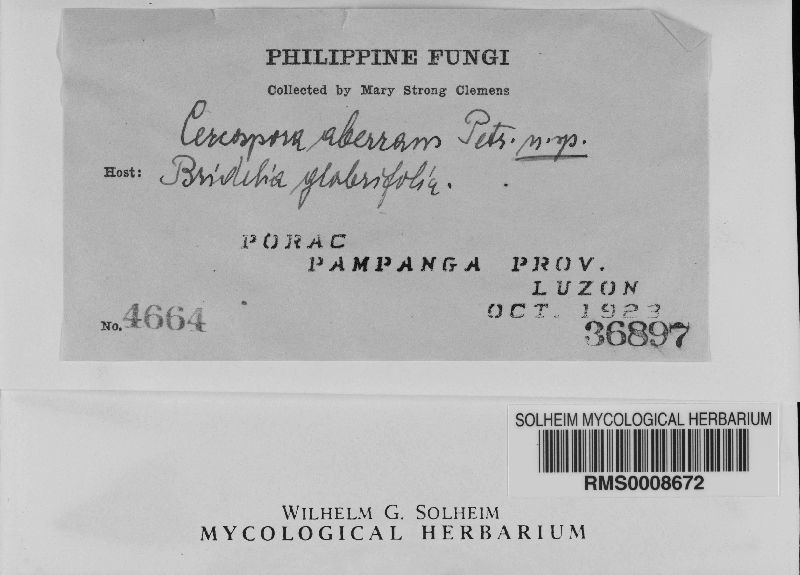 PHILIPPINE FUNGI
Collected by Mary Strong Clemens
Cercospora aberrans Petr. n. sp.
Host: Bridelia glabrifolia.
PORAC
PAMPANGA PROV.
LUZON
OCT. 1923
No. 4664
36897
SOLHEIM MYCOLOGICAL HERBARIUM
RMS0008672
WILHELM G. SOLHEIM
MYCOLOGICAL HERBARIUM